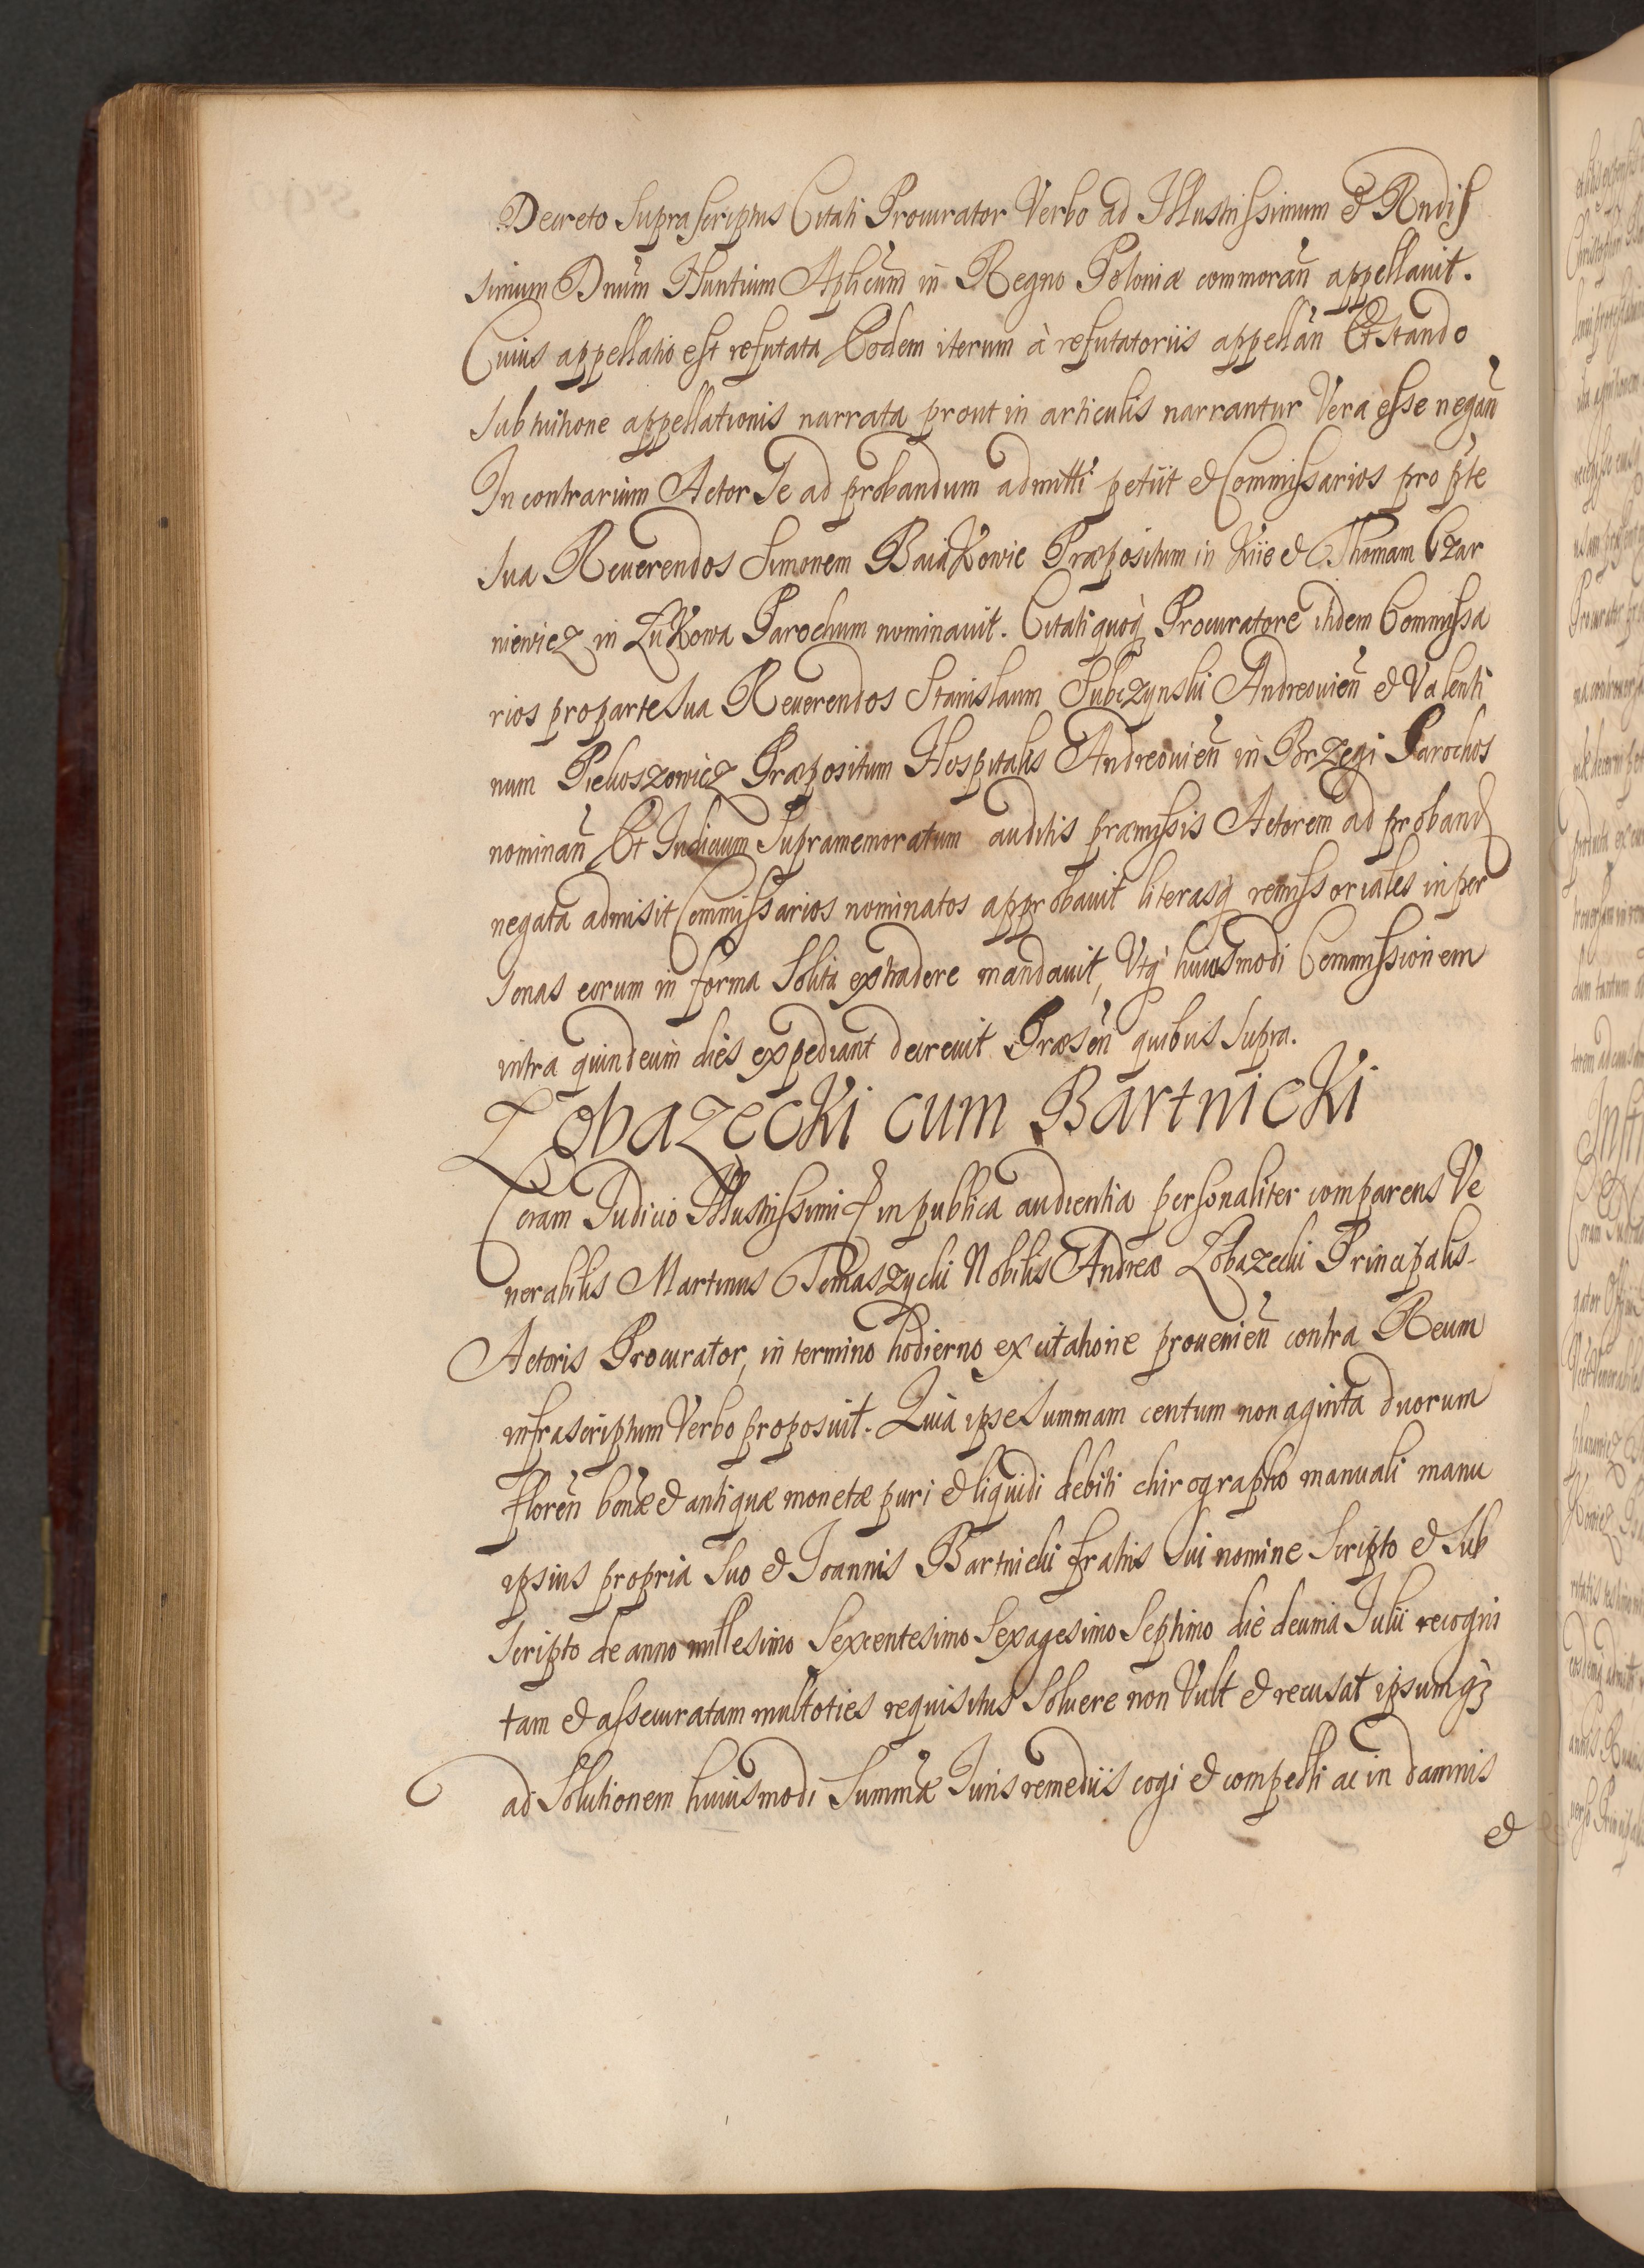 Decreto Suprascriptus Citati Procurator Verbo ad Illustrissimum & Rndis
simum Dnum Nuntium Aplicum in Regno Poloniæ commoran̄ appellauit.
Cuius appellatio est refutata Eodem iterum à refutatoriis appellan̄ Et stando
sub tuitione appellationis narrata prout in articulis narrantur Vera esse negan̄
In contrarium Actor Se ad probandum admitti petiit & Commissarios pro pte
sua Reuerendos Simonem Præpositum in Kiie & Thomam Czar
niewicz in Łukowa Parochum nominauit. Citati quoq̨ Procuratore itidem Commissa
rios pro parte sua Reuerendos Stanislaum Andreouien̄ & Valenti
num Piekoszowicz Præpositum Hospitalis Andreouien̄ in Brzegi Parochos
nominan̄ Et Iudicium Supramemoratum auditis præmissis Actorem ad proband
negata admisit Commissarios nominatos approbauit literasq̨ remissoriales in per
sonas eorum in forma Solita extradere mandauit, Vtq̨ huiusmodi Commissionem
intra quindecim dies expediant decreuit Præsen̄ quibus Supra.
Łobazecki cum Bartnicki
Coram Iudicio Illustrissimi & in publica audientia personaliter comparens Ve
nerabilis Martinus Tomaszycki Nobilis Andreæ Łobazecki Principalis
Actoris Procurator, in termino hodierno ex citatione prouenien̄ contra Reum
infrascriptum Verbo proposuit. Quia ipse Summam centum nonaginta duorum
floren̄ bonæ & antiquæ monetæ puri & liquidi debiti chirographo manuali manu
ipsius propria Suo & Ioannis Bartnicki fratris Sui nomine Scripto & Sub
scripto de anno millesimo Sexcentesimo Sexagesimo Septimo die decima Iulii recogni
tam & assecuratam multoties requisitus Soluere non Vult & recusat ipsumq̨
ad Solutionem huiusmodi Summæ Iuris remediis cogi & compelli ac in damnis
&